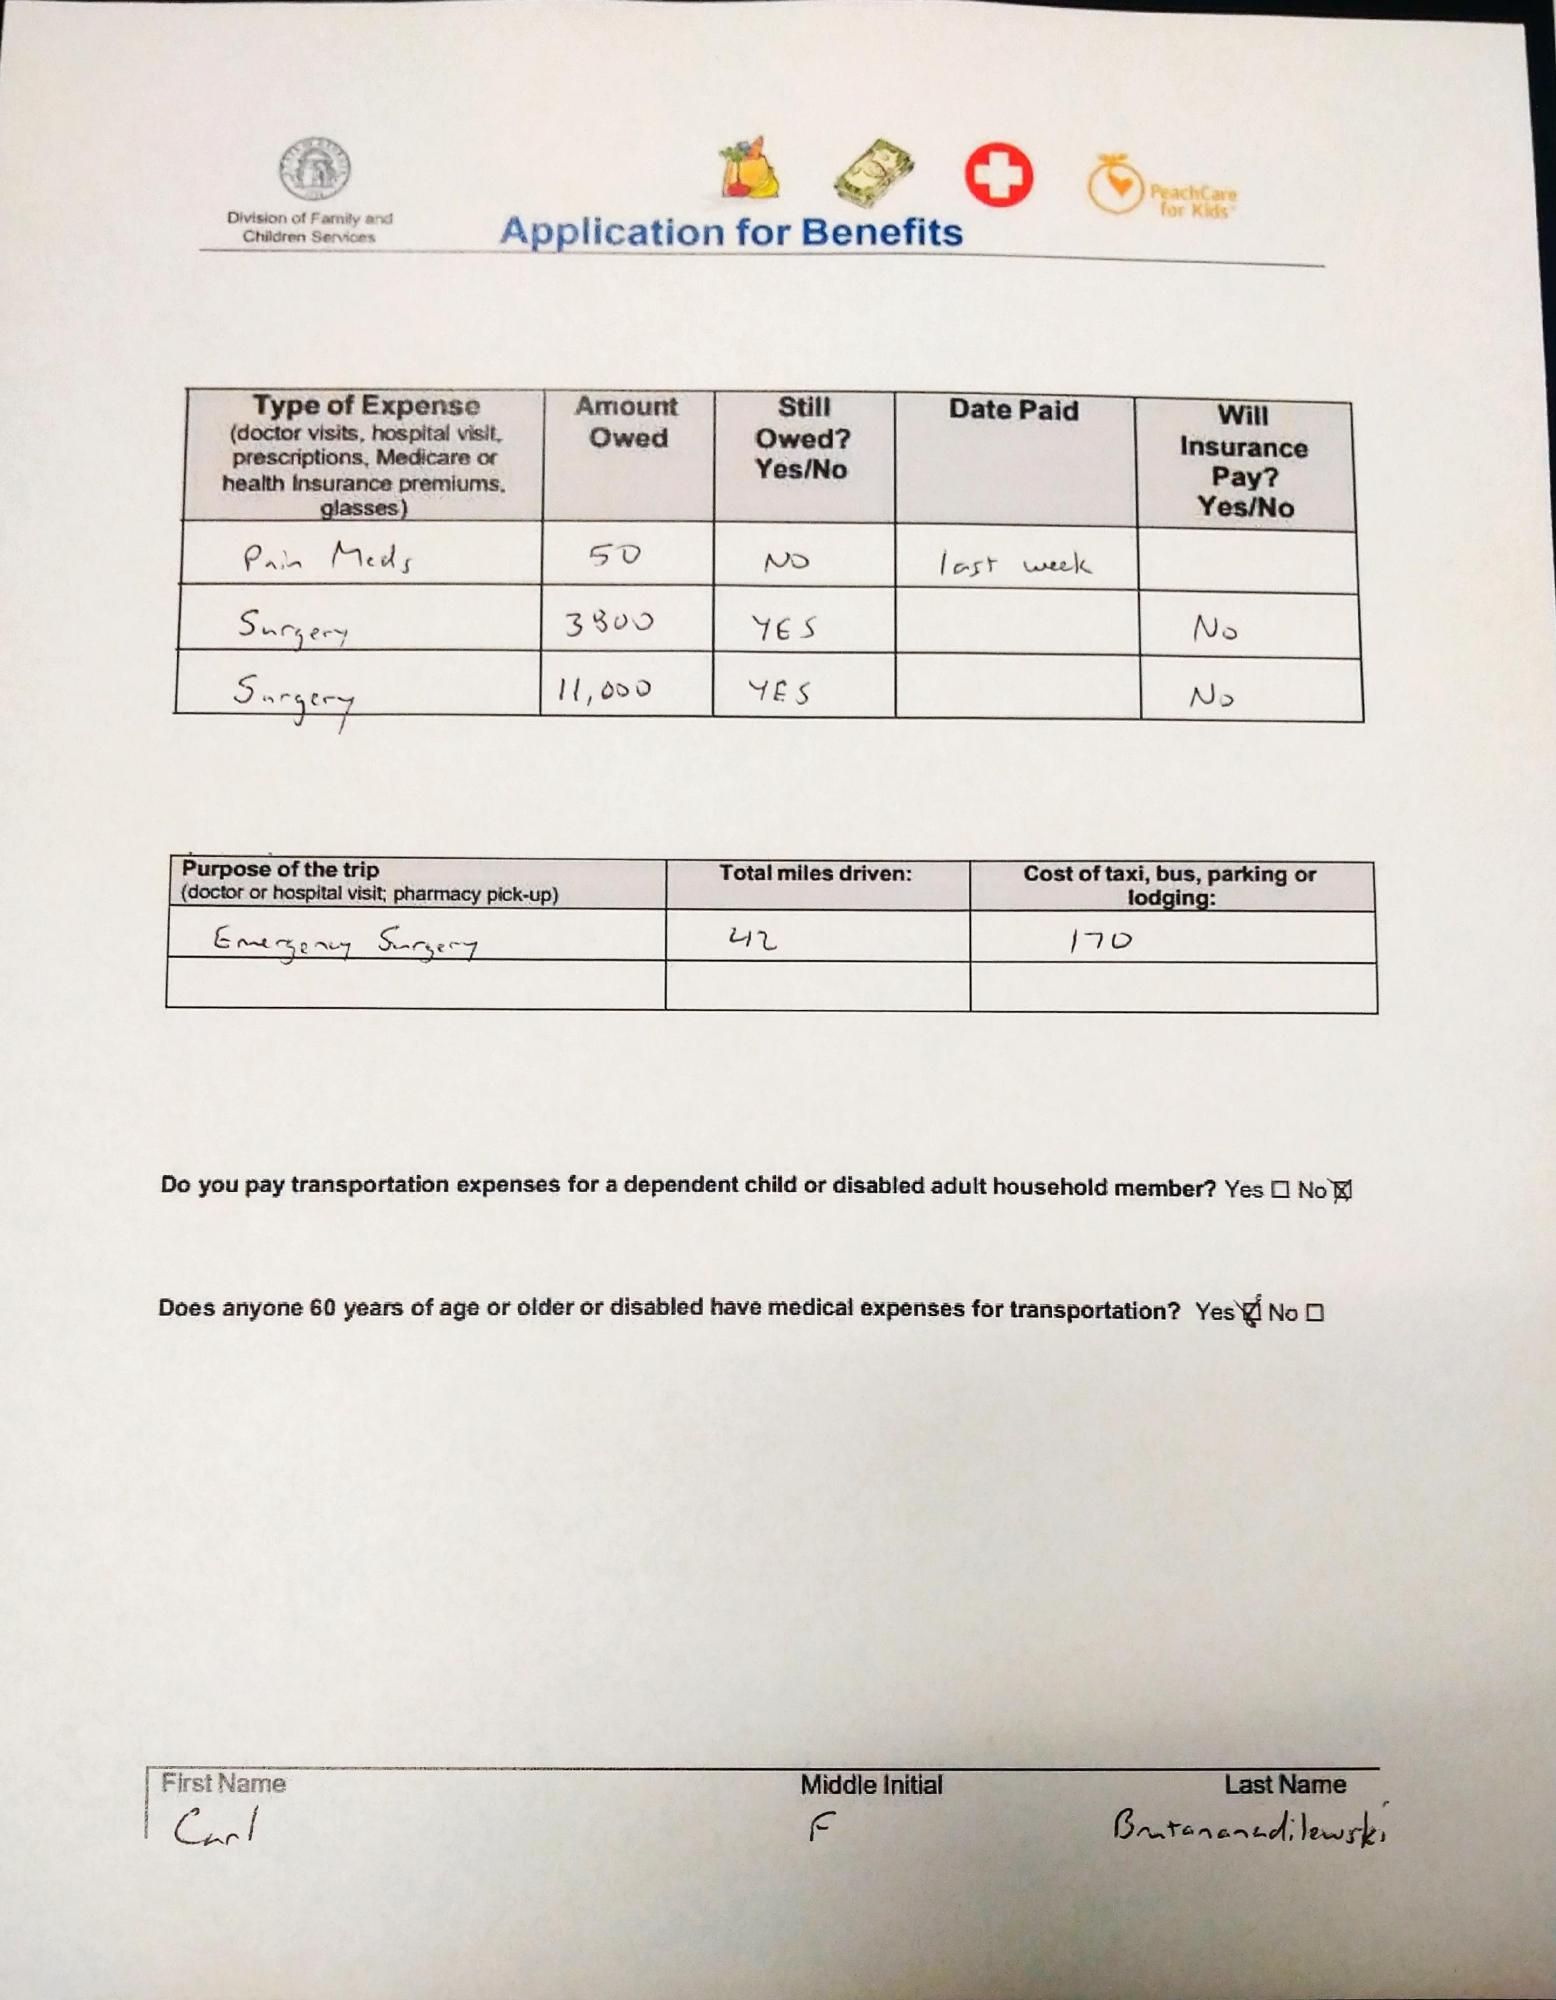 Division of Family and
Children Services
Application for Benefits
PeachCare
for Kids
Type of Expense
(doctor visits, hospital visit,
prescriptions, Medicare or
health Insurance premiums,
glasses)
Amount
Owed
Still
Owed?
Yes/No
Date Paid
Will
Insurance
Pay?
Yes/No
Pain Meds 50 NO last week
Surgery 3800 YES No
Surgery 11,000 YES No
Purpose of the trip
(doctor or hospital visit; pharmacy pick-up)
Total miles driven:
Cost of taxi, bus, parking or
lodging:
Emergency Surgery 42 170
Do you pay transportation expenses for a dependent child or disabled adult household member? Yes ☐ No ☒
Does anyone 60 years of age or older or disabled have medical expenses for transportation? Yes ☒ No ☐
First Name Middle Initial Last Name
Carl F Brutananadilewski